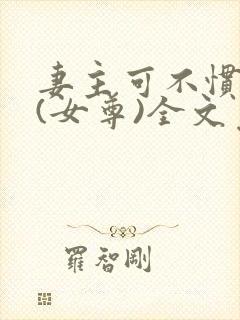 妻主可不慣
(女尊)全文
羅智剛